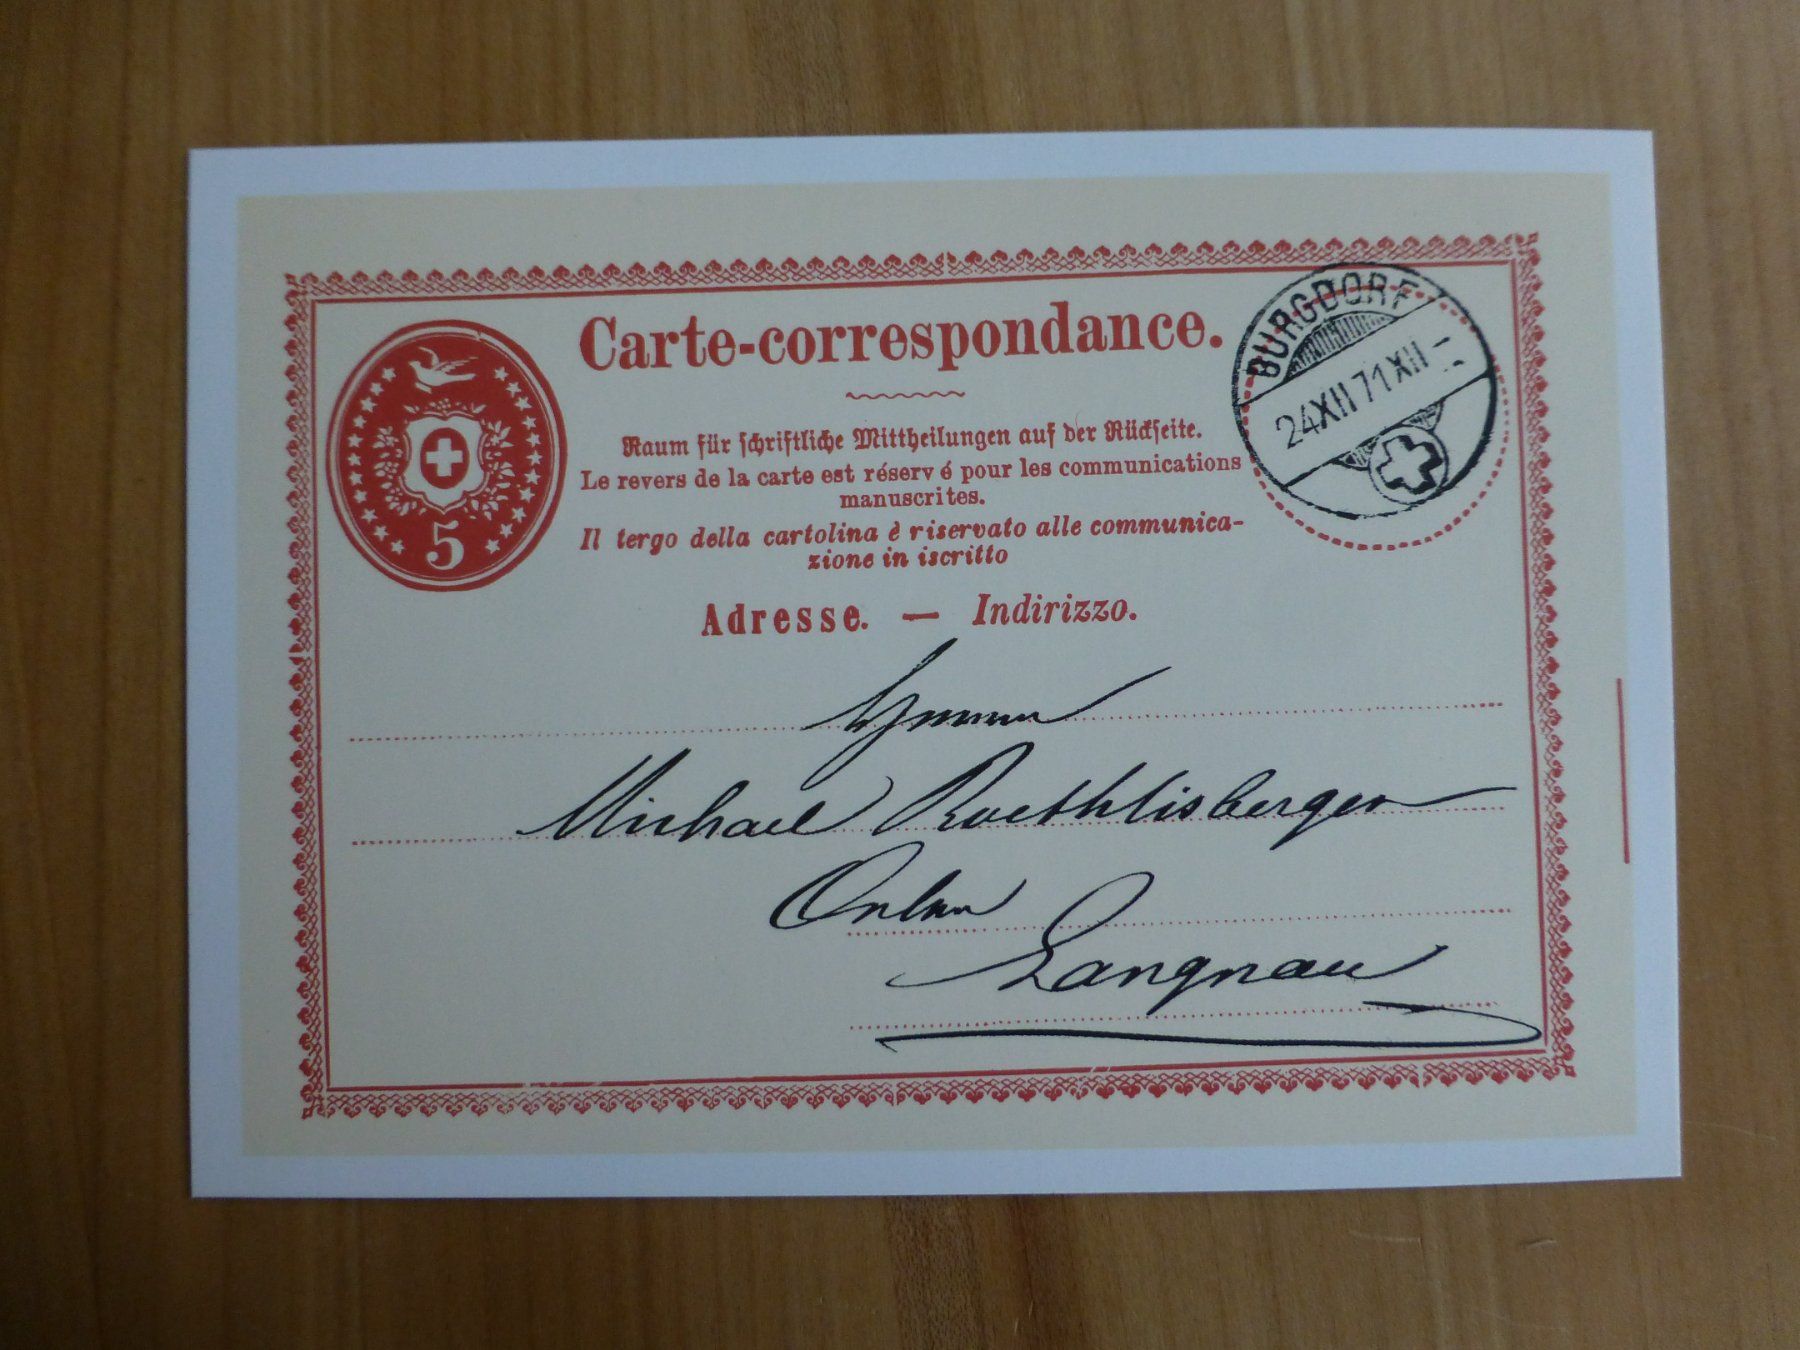 Carte-correspondance.
Raum für schriftliche Mittheilungen auf der Rückseite.
Le revers de la carte est réservé pour les communications
manuscrites.
Il tergo della cartolina è riservato alle communica-
zione in iscritto
Adresse. — Indirizzo.
5
BURGDORF
24 XII 71 XII
Michael Roethlisberger
Langnau